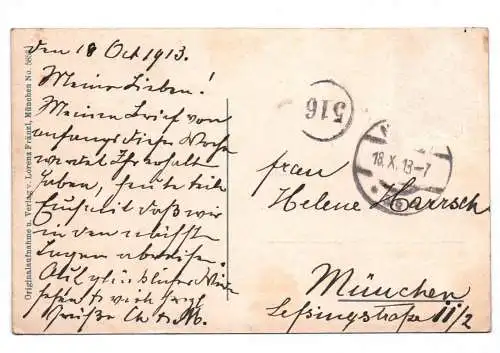 Originalaufnahme u. Verlag v. Lorenz Fränzl, München No.
den 18 Oct 1913.
Meine Lieben!
Meinen Brief von
anfangs dieser Woche
werdet Ihr erhalten
haben, heute teile
Euch mit daß wir
in den nächsten
Tagen abreisen.
Auf glückliches Wieder-
sehen
Grüße
516
18.X.13-7
Frau
Helene Harrsch
München
Lessingstraße 11/2